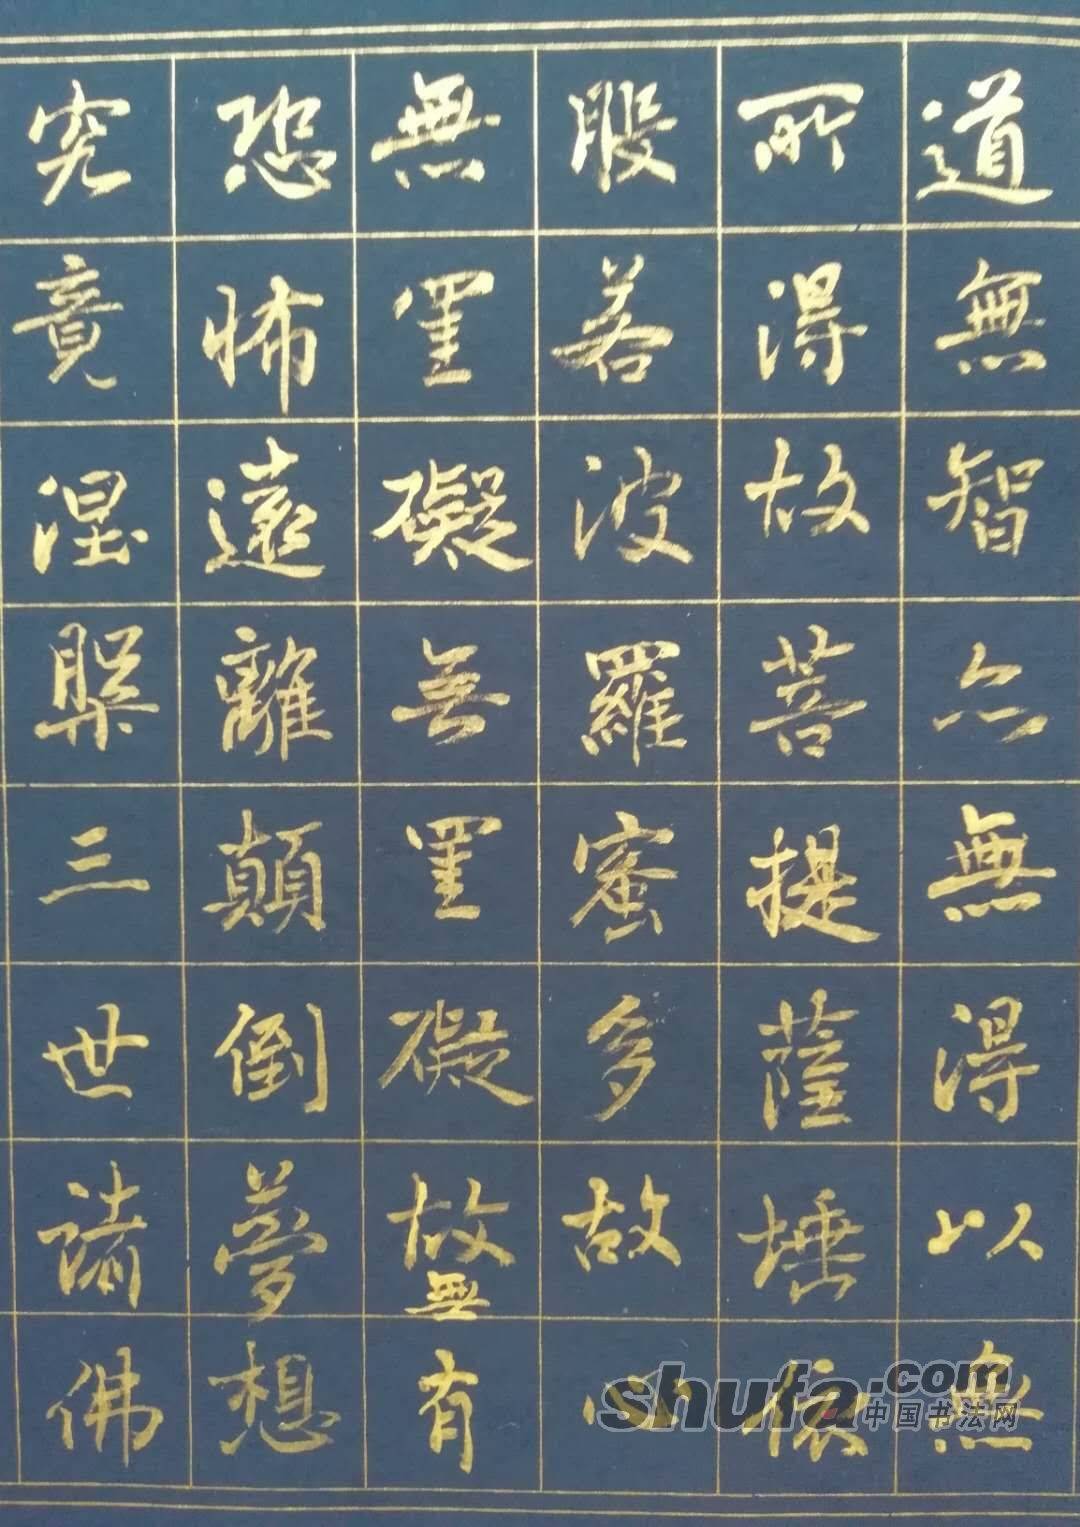 道無智亦無得以無
所得故菩提薩埵依
般若波羅蜜多故心
無罣礙無罣礙故無有
恐怖遠離顛倒夢想
究竟涅槃三世諸佛
shufa.com
中国书法网